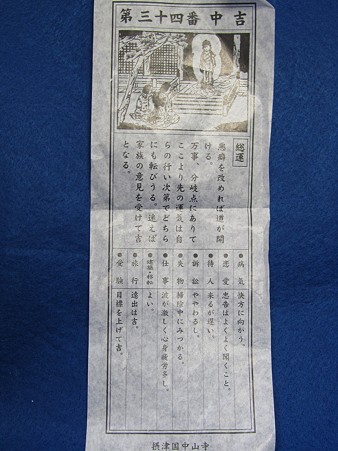 第三十四番 中吉
総運
悪癖を改めれば道が開
ける。
万事、分岐点にありて
ここより先の運気は自
らの行い次第でどちら
にも転びうる。迷えば
家族の意見を受けて吉
となる。
●病気 快方に向かう。
●恋愛 忠告はよくよく聞くこと。
●待人 来るが遅い。
●訴訟 ややわるし。
●失物 掃除中にみつかる。
●仕事 波が激しく心身疲労多し。
●建築・移転 よい。
●旅行 遠出は吉。
●受験 目標を上げて吉。
摂津国中山寺